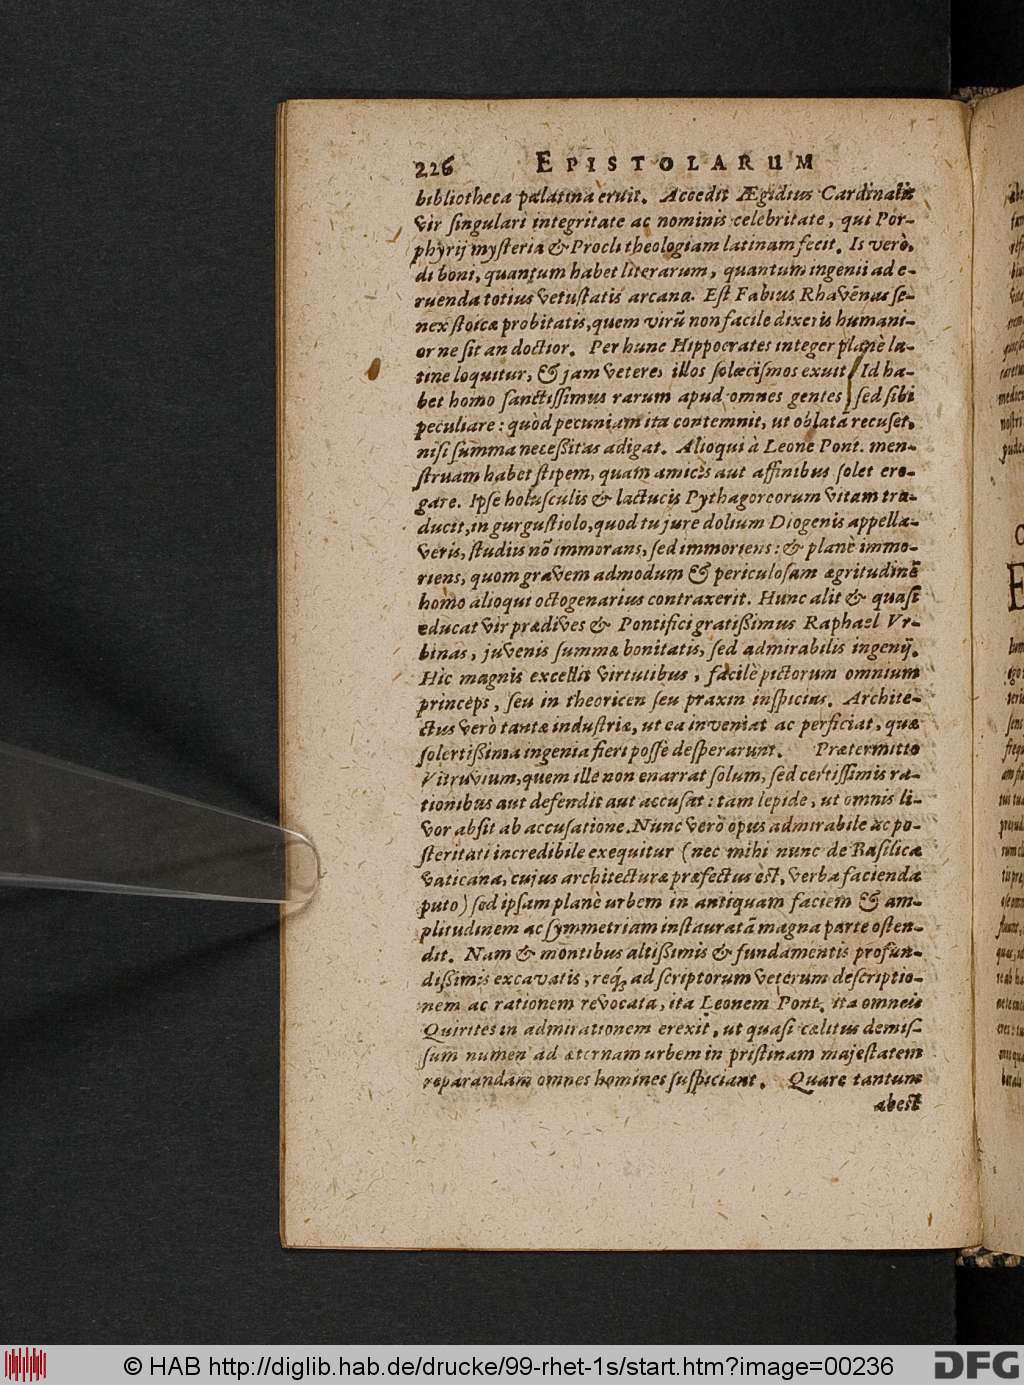 226 EPISTOLARUM
bibliotheca palatina eruit. Accedit Ægidius Cardinalis
vir singulari integritate ac nominis celebritate, qui Por-
phyrij mysteria & Procli theologiam latinam fecit. Is verò,
di boni, quantum habet literarum, quantum ingenii ad e-
ruenda totius vetustatis arcana. Est Fabius Rhavēnas se-
nex stoicæ probitatis, quem virū non facile dixeris humani-
or ne sit an doctior. Per hunc Hippocrates integer planè la-
tine loquitur, & jam veteres illos solœcismos exuit. Id ha-
bet homo sanctissimus rarum apud omnes gentes, sed sibi
peculiare: quòd pecuniam ita contemnit, ut oblatā recuset,
nisi summa necessitas adigat. Alioqui à Leone Pont. men-
struam habet stipem, quam amicis aut affinibus solet ero-
gare. Ipse holusculis & lactucis Pythagoreorum vitam tra-
ducit, in gurgustiolo, quod tu jure dolium Diogenis appella-
veris, studiis nō immorans, sed immoriens: & planè immo-
riens, quom gravem admodum & periculosam ægritudinē
homo alioqui octogenarius contraxerit. Hunc alit & quasi
educat vir prædives & Pontifici gratissimus Raphael Vr-
binas, juvenis summæ bonitatis, sed admirabilis ingenij.
Hic magnis excellit virtutibus, facilè pictorum omnium
princeps, seu in theoricen seu praxin inspicias. Archite-
ctus verò tantæ industriæ, ut ea inveniat ac perficiat, quæ
solertissima ingenia fieri posse desperarunt. Prætermitto
Vitruvium, quem ille non enarrat solum, sed certissimis ra-
tionibus aut defendit aut accusat: tam lepide, ut omnis li-
vor absit ab accusatione. Nunc verò opus admirabile ac po-
steritati incredibile exequitur (nec mihi nunc de Basilica
Vaticana, cujus architecturæ præfectus est, verba facienda
puto) sed ipsam planè urbem in antiquam faciem & am-
plitudinem ac symmetriam instauratā magna parte osten-
dit. Nam & montibus altissimis & fundamentis profun-
dissimis excavatis, reqȝ ad scriptorum veterum descriptio-
nem ac rationem revocata, ita Leonem Pont. ita omneis
Quirites in admirationem erexit, ut quasi cælitus demis-
sum numen ad æternam urbem in pristinam majestatem
reparandam omnes homines suspiciant. Quare tantum
abest
© HAB http://diglib.hab.de/drucke/99-rhet-1s/start.htm?image=00236
DFG